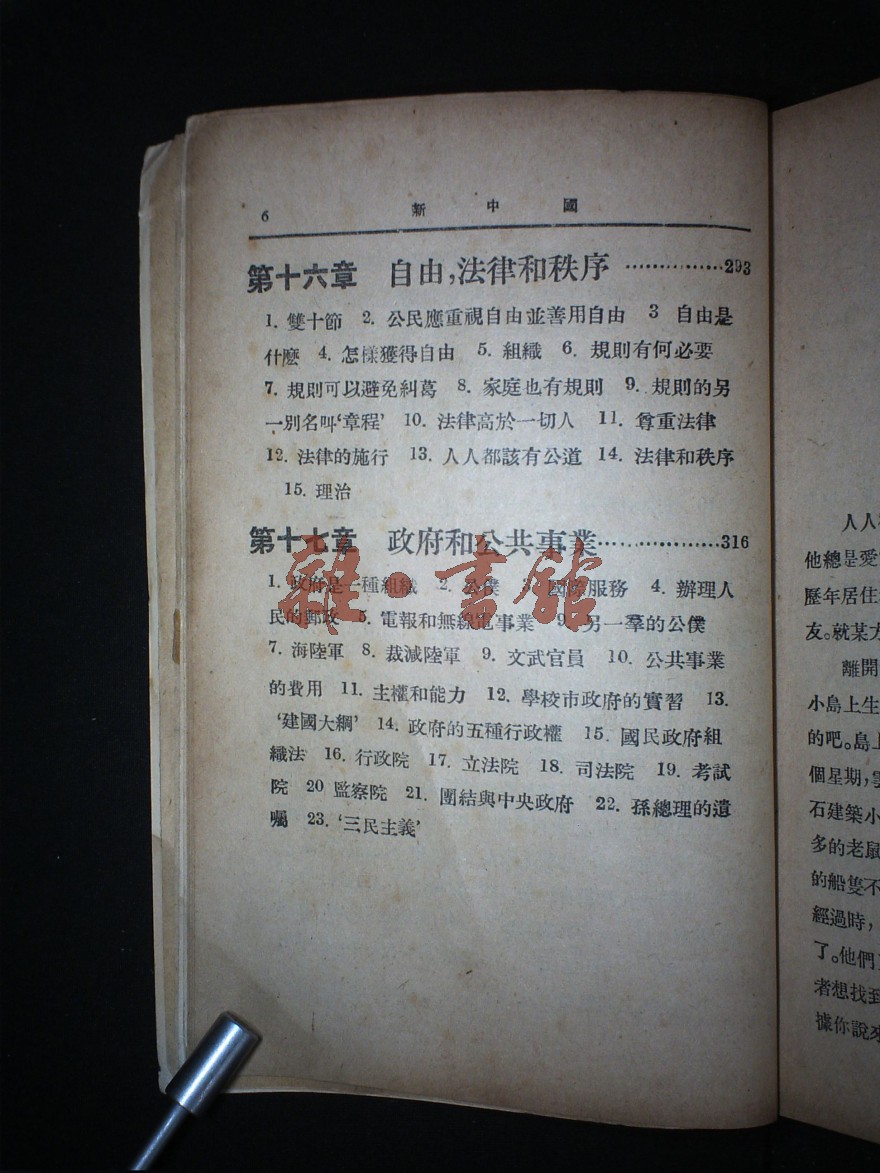 6 新中國
第十六章 自由,法律和秩序 ················293
1. 雙十節 2. 公民應重視自由並善用自由 3 自由是
什麽 4. 怎樣獲得自由 5. 組織 6. 規則有何必要
7. 規則可以避免糾葛 8. 家庭也有規則 9. 規則的另
一別名叫‘章程’ 10. 法律高於一切人 11. 尊重法律
12. 法律的施行 13. 人人都該有公道 14. 法律和秩序
15. 理治
第十七章 政府和公共事業··················316
1. 政府是一種組織 2. 公僕 3. 國際服務 4. 辦理人
民的郵政 5. 電報和無線電事業 9. 另一羣的公僕
7. 海陸軍 8. 裁減陸軍 9. 文武官員 10. 公共事業
的費用 11. 主權和能力 12. 學校市政府的實習 13.
‘建國大綱’ 14. 政府的五種行政權 15. 國民政府組
織法 16. 行政院 17. 立法院 18. 司法院 19. 考試
院 20 監察院 21. 團結與中央政府 22. 孫總理的遺
囑 23. ‘三民主義’
雜·書館
人人
他總是愛
歷年居住
友。就某方
離開
小島上生
的吧。島上
個星期,
石建築小
多的老鼠
的船隻不
經過時,
了。他們
者想找到
據你說來